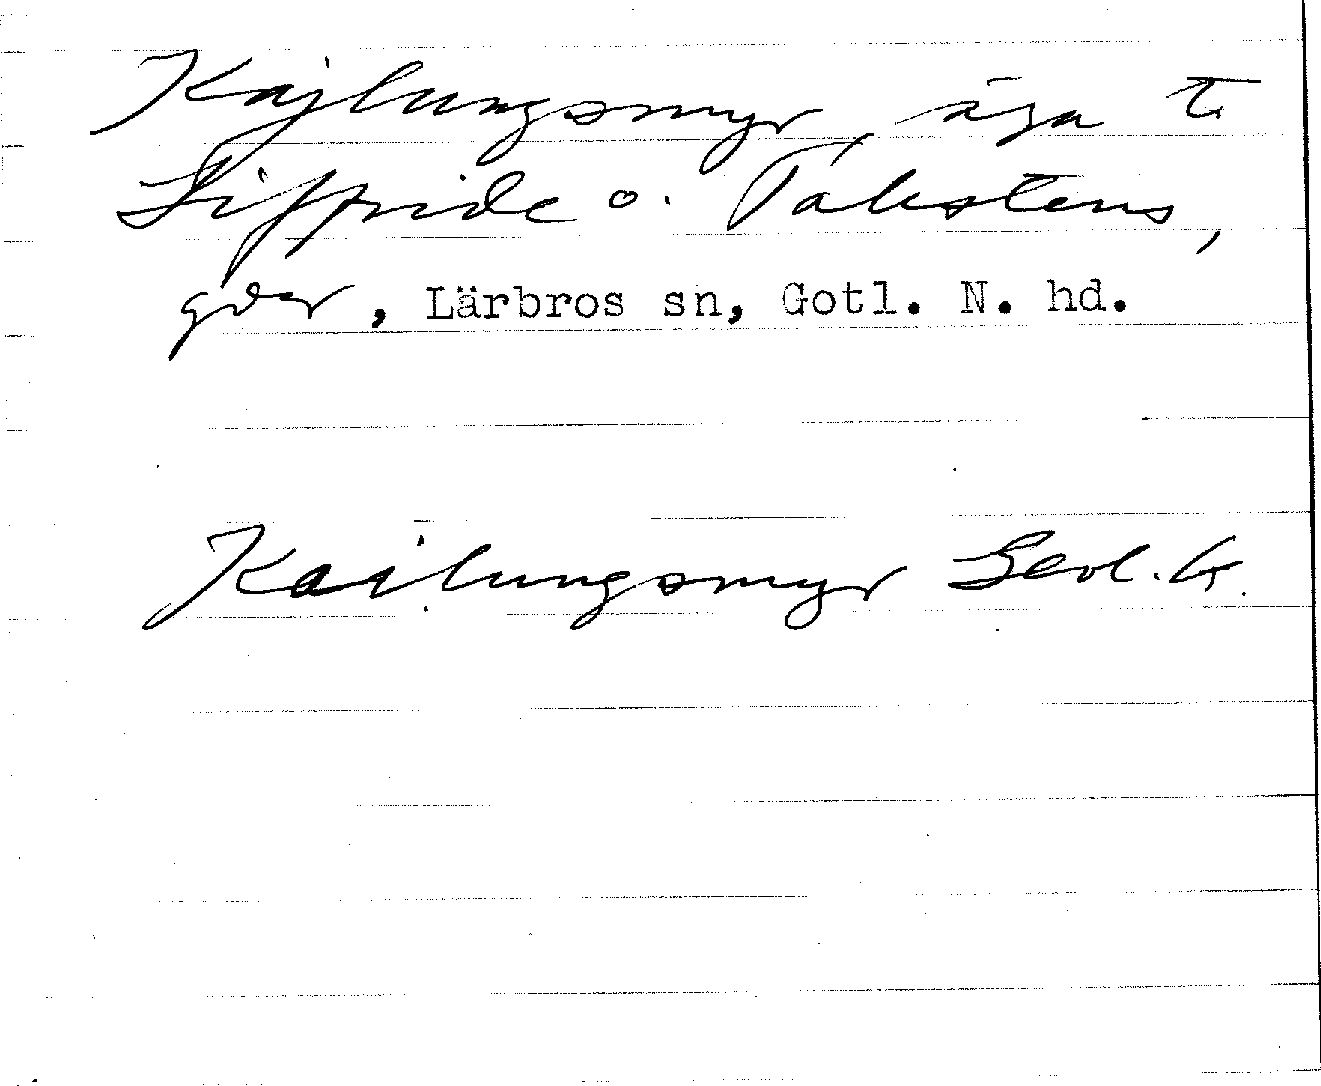 Kajlungsmyr, äga t.
Liffride o. Takstens,
gdar, Lärbros sn, Gotl. N. hd.
Kailungsmyr Geol. k.